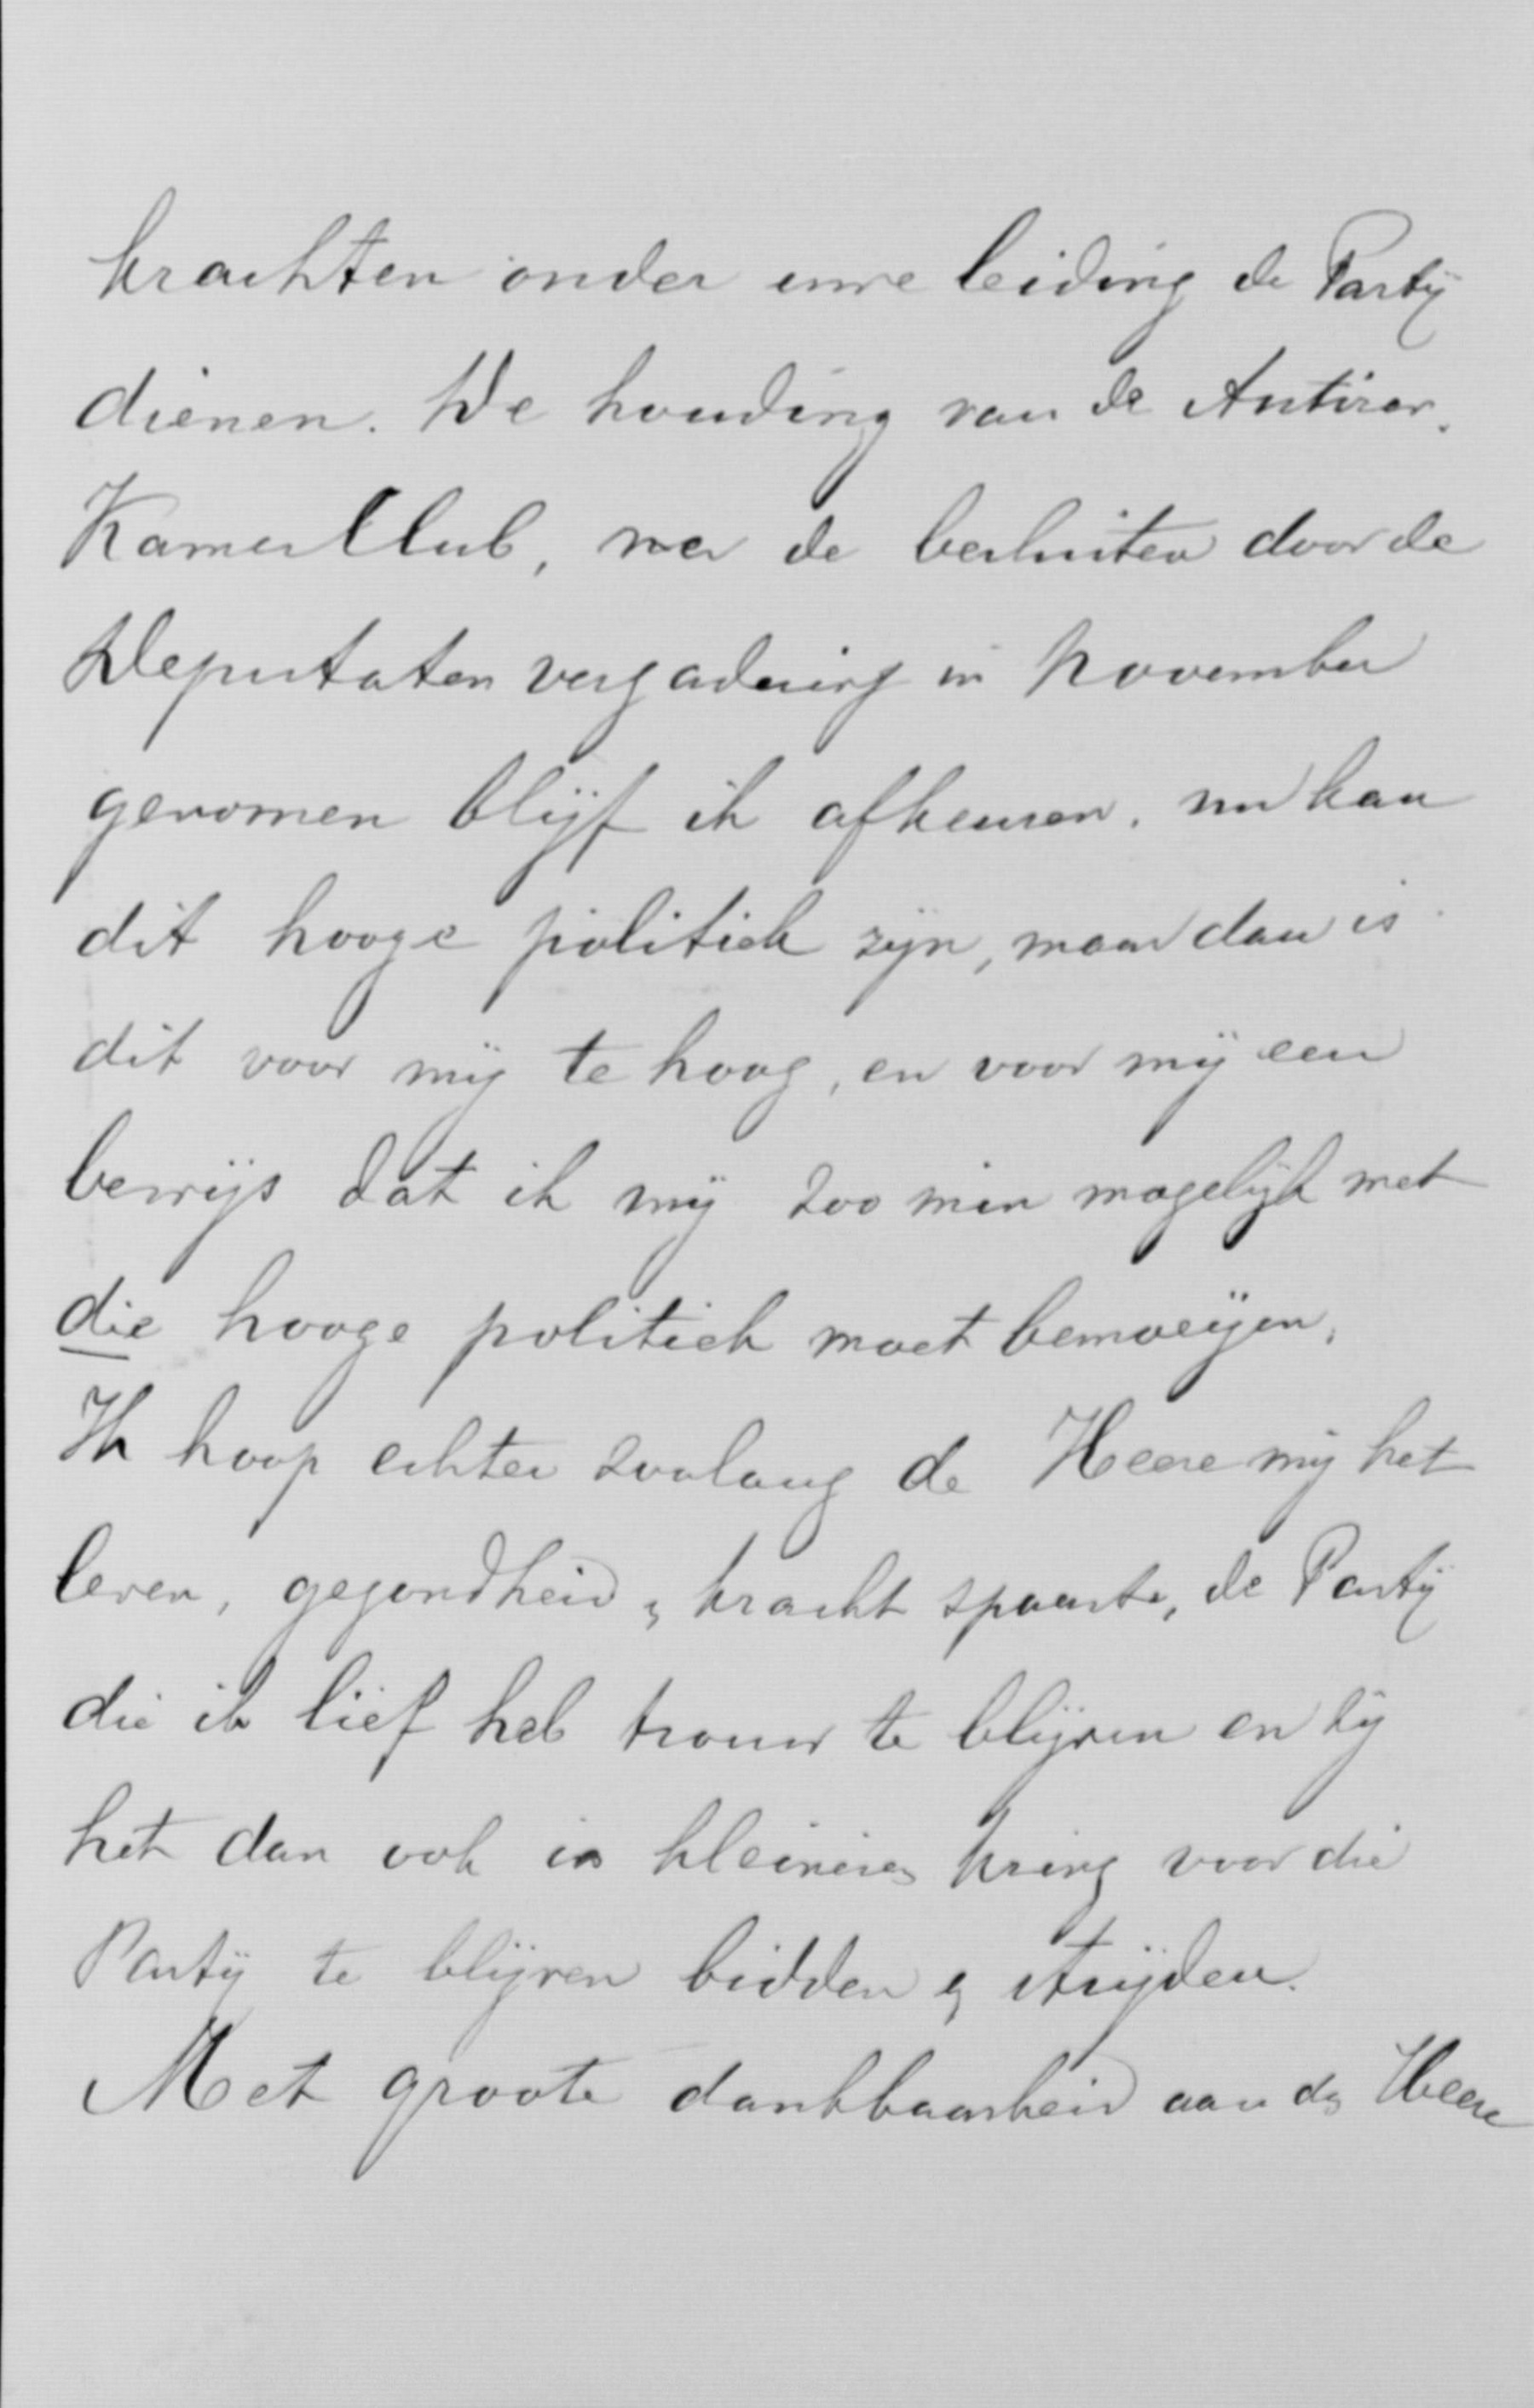 krachten onder uwe leiding de Partij
dienen. De houding van de Antirev.
KamerClub, na de besluiten door de
Deputaten vergadering in November
genomen blijf ik afkeuren. nu kan
dit hooge politiek zijn, maar dan is
dit voor mij te hoog, en voor mij een
bewijs dat ik mij zoo min mogelijk met
die hooge politiek moet bemoeijen.
Ik hoop echter zoolang de Heere mij het
leven, gezondheid & kracht spaarte, de Partij
die ik lief heb trouw te blijven en zij
het dan ook in kleineren kring voor die
Partij te blijven bidden & strijden.
Met groote dankbaarheid aan de Heere